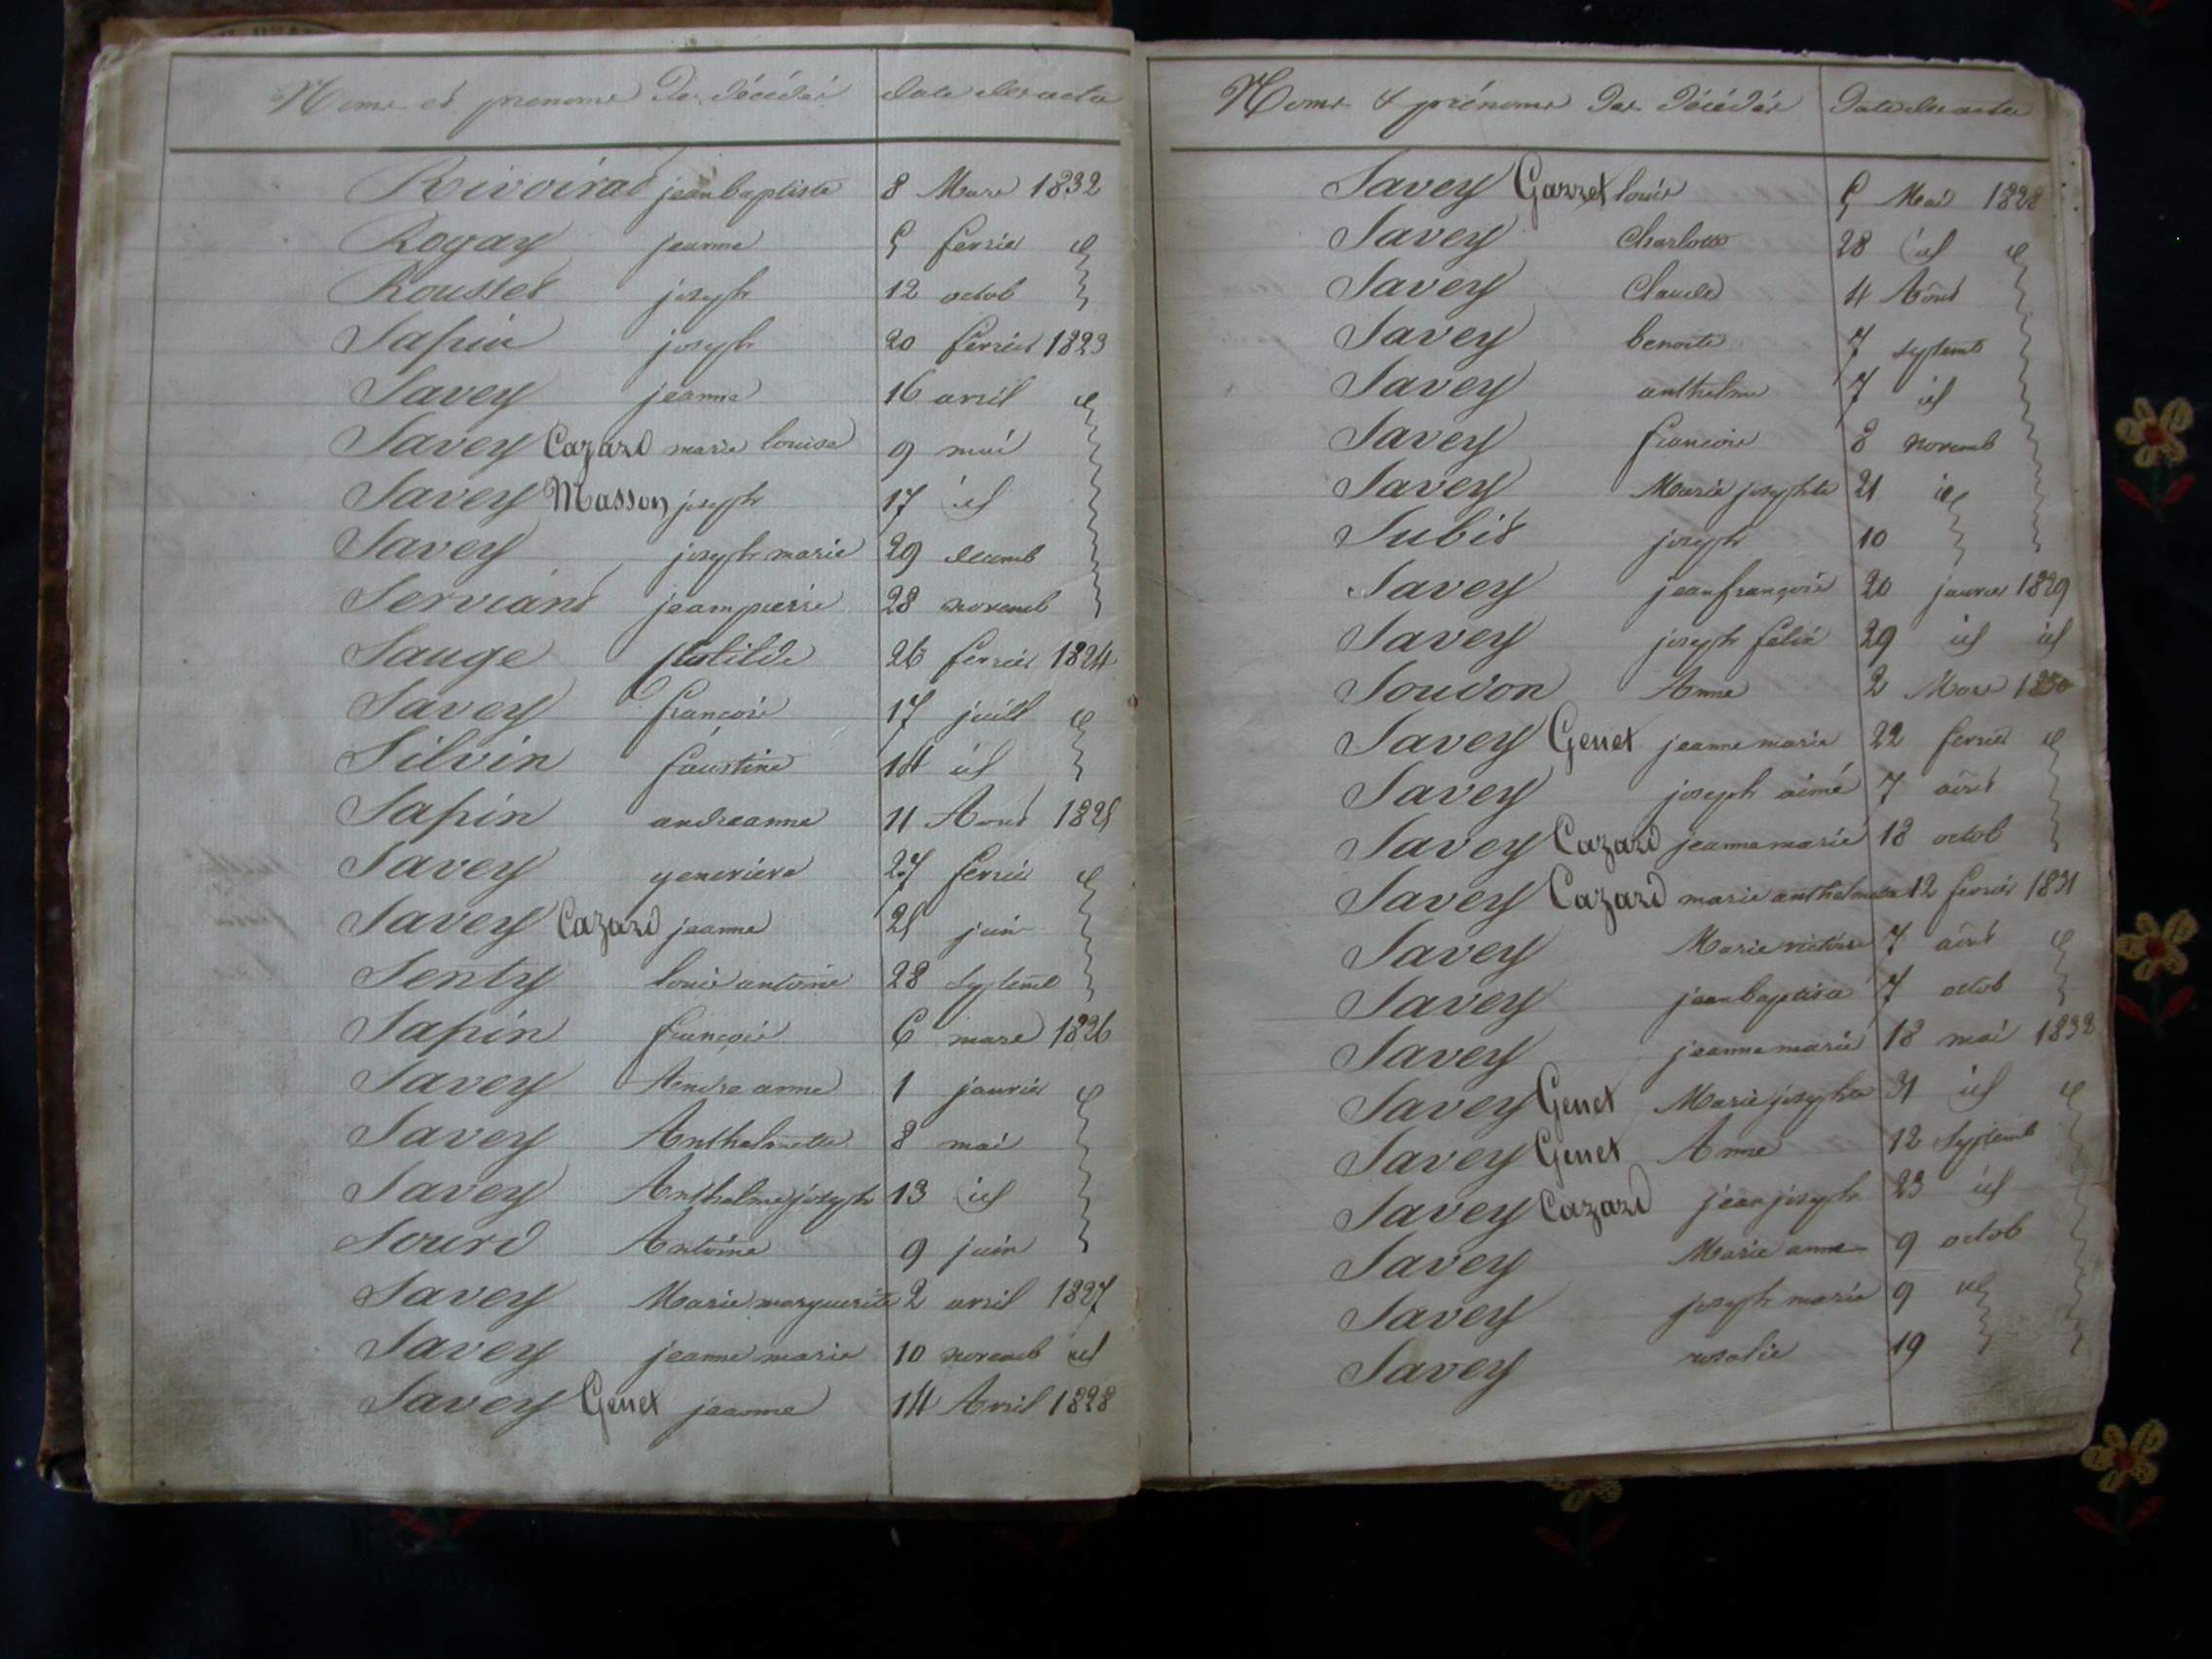 Noms et prenoms Des décédés Date des actes
Rivoirad jean baptiste 8 Mars 1832
Rogay jeanne 5 fevrier id
Rousset joseph 12 octob
Sapin joseph 20 fevrier 1823
Savey jeanne 16 avril id
Savey Cazard marie louise 9 mai
Savey Masson joseph 17 id
Savey joseph marie 29 decemb
Serviant jean pierre 28 novemb
Sauge Clotilde 26 fevrier 1824
Savey francois 17 juill id
Silvin faustine 14 id
Sapin andreanne 11 Aout 1825
Savey genevieve 27 fevrier id
Savey Cazard jeanne 25 juin
Senty louis antoine 28 septemb
Sapin françois 6 mars 1826
Savey Andreanne 1 janvier id
Savey Anthelmette 8 mai
Savey Anthelme joseph 13 id
Sourd Antoine 9 juin
Savey Marie marguerite 2 avril 1827
Savey jeanne marie 10 novemb id
Savey Genet jeanne 14 Avril 1828
Noms & prénoms Des Décédés Date des actes
Savey Gazzet louis 5 Mai 1828
Savey Charlotte 28 id id
Savey Claude 4 Aout
Savey benoite 7 septemb
Savey anthelme 7 id
Savey francois 8 novemb
Savey Marie josephte 21 id
Subit joseph 10
Savey jean françois 20 janvier 1829
Savey joseph félix 29 id id
Soudon Anne 2 Mars 1830
Savey Genet jeanne marie 22 fevrier id
Savey joseph aimé 7 aout
Savey Cazard jeanne marie 18 octob
Savey Cazard marie anthelmette 12 fevrier 1831
Savey Marie victoire 7 aout id
Savey jean baptiste 7 octob
Savey jeanne marie 18 mai 1832
Savey Genet Marie josephte 31 id id
Savey Genet Anne 12 Septemb
Savey Cazard jean joseph 23 id
Savey Marie anne 9 octob
Savey joseph marie 9 id
Savey rosalie 19